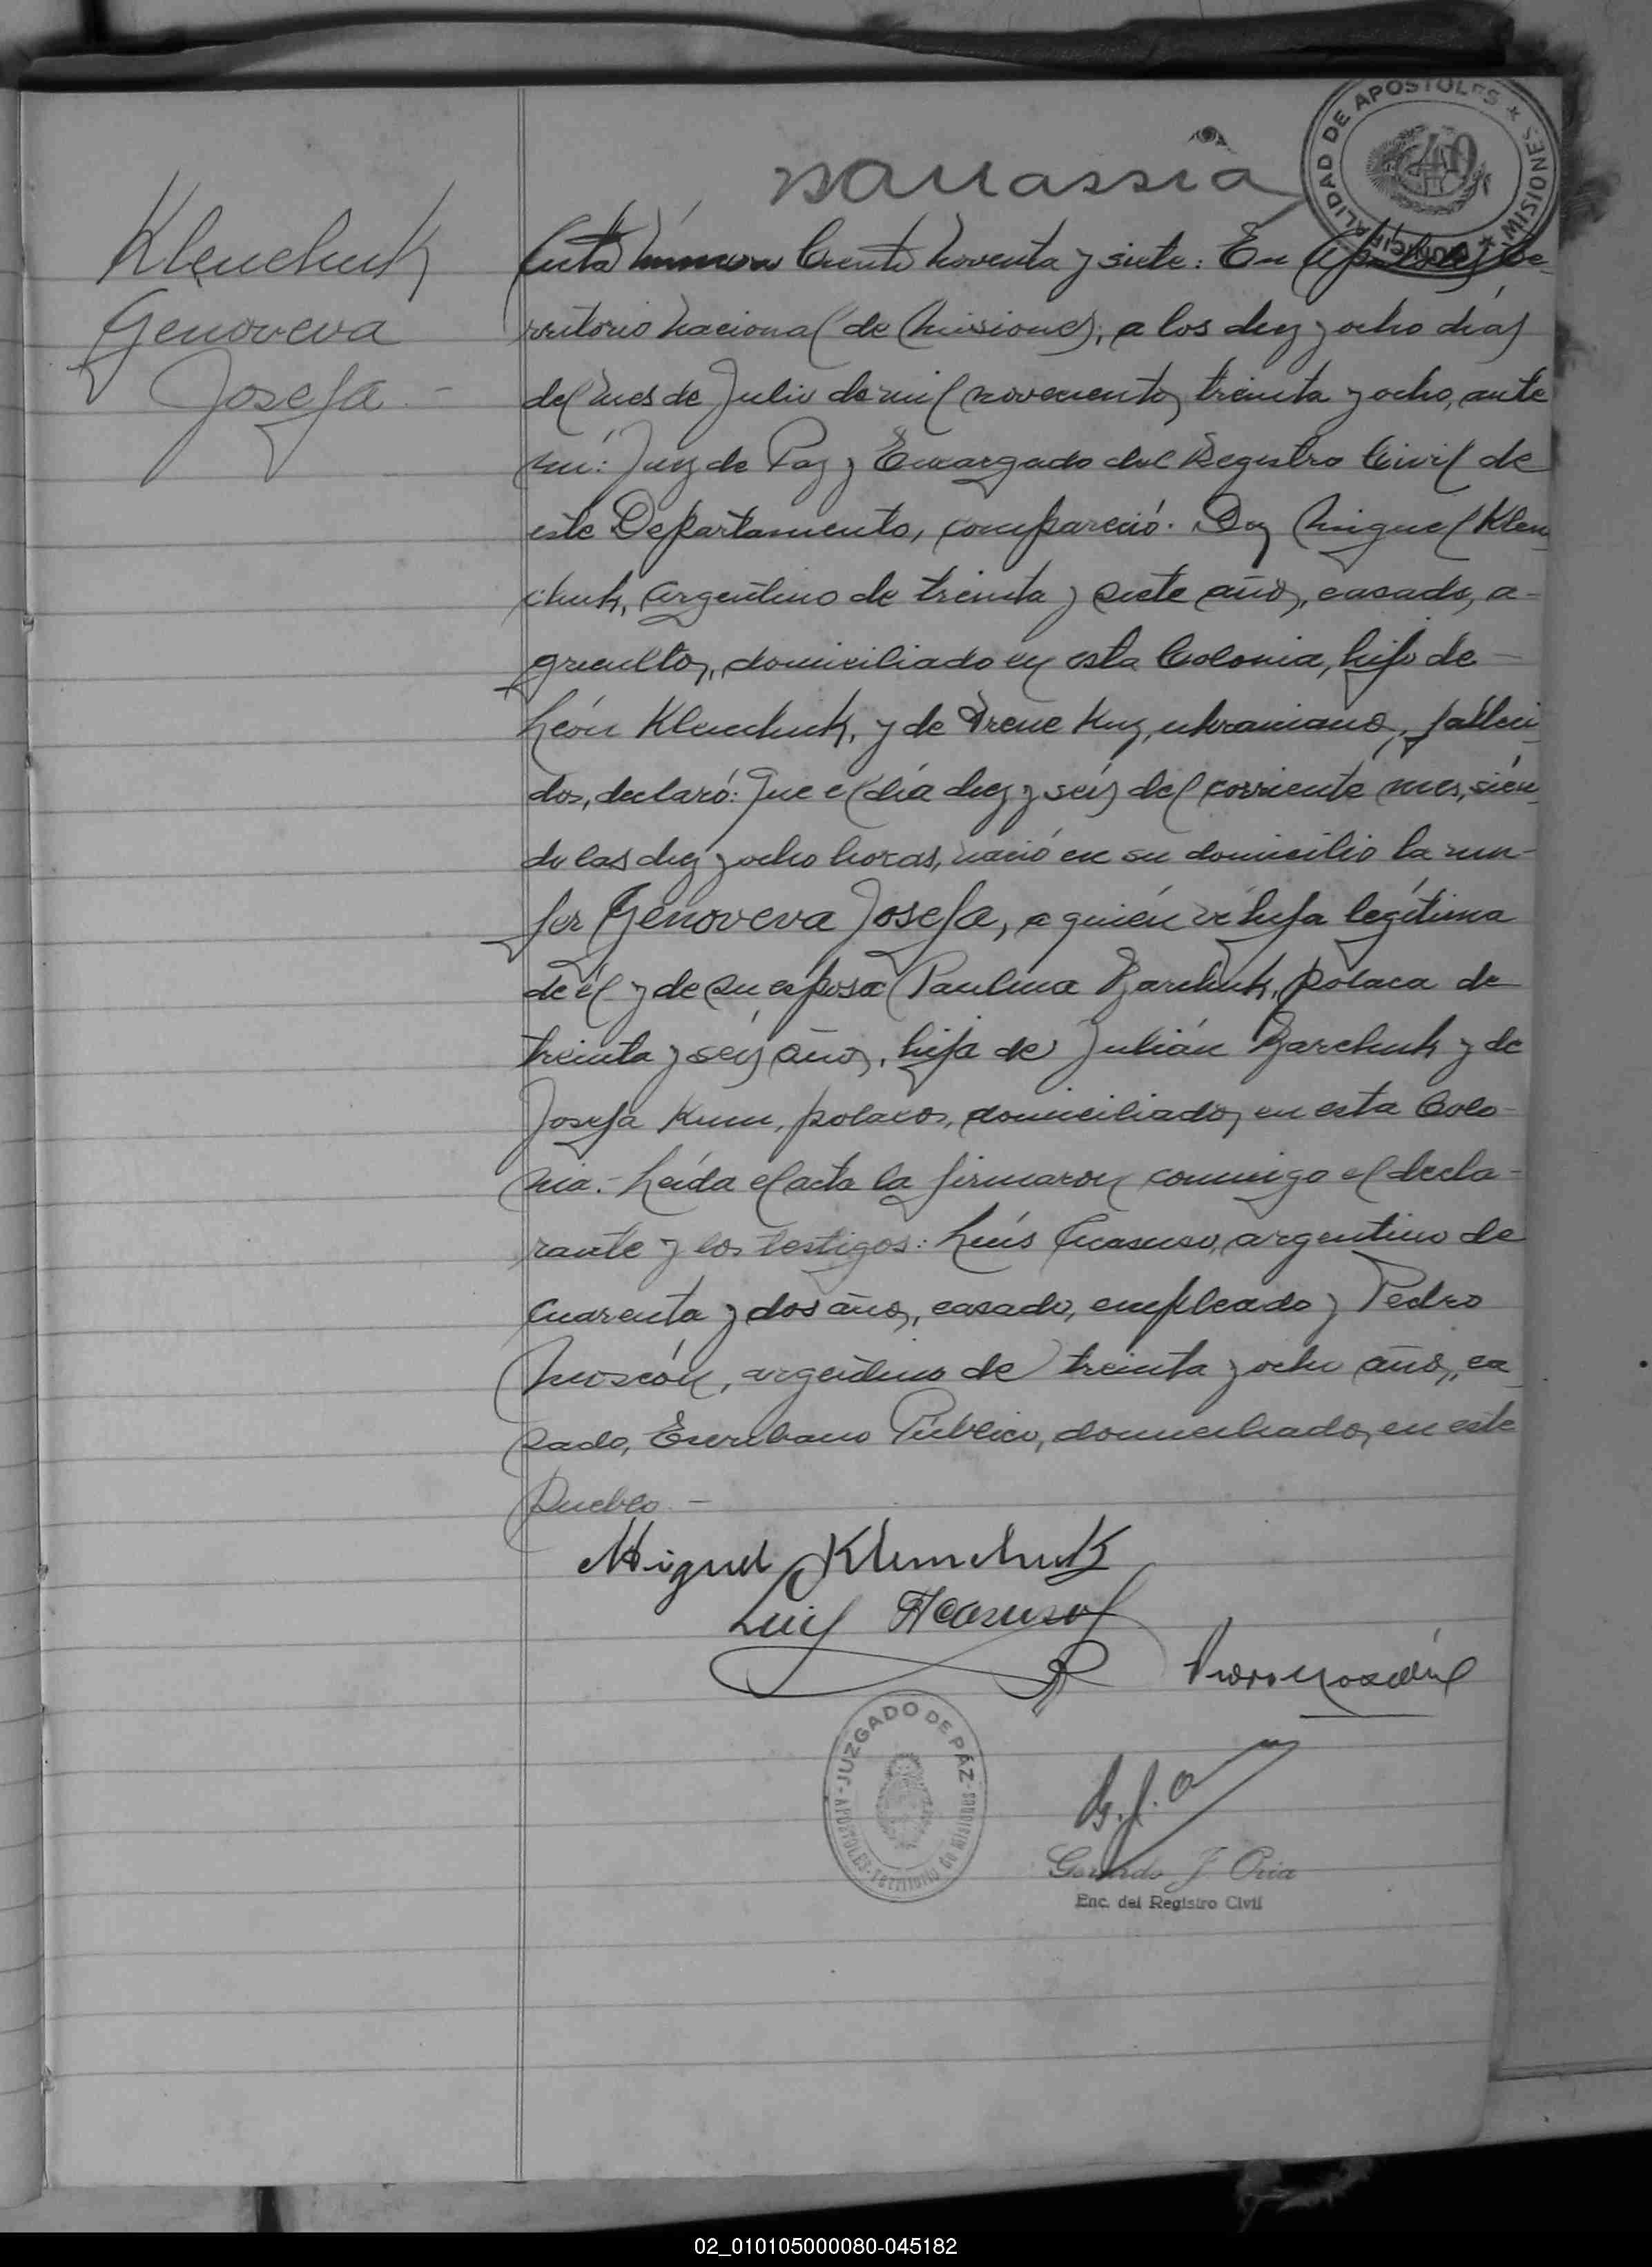 MUNICIPALIDAD DE APOSTOLES * MISIONES *
Klenchuk
Genoveva
Josefa.-
Acta número Ciento noventa y siete: En Apóstoles, Te-
rritorio Nacional de Misiones, a los diez y ocho días
del mes de Julio de mil novecientos treinta y ocho, ante
mí: Juez de Paz y Encargado del Registro Civil de
este Departamento, compareció: Don Miguel Klen
chuk, argentino de treinta y siete años, casado, a-
gricultor, domiciliado en esta Colonia, hijo de
León Klenchuk, y de Irene Kuz, ukranianos, falleci
dos, declaró: Que el día diez y seis del corriente mes, sien
do las diez y ocho horas, nació en su domicilio la mu-
jer Genoveva Josefa, a quién vé hija legítima
de él y de su esposa Paulina Zarchuk, polaca de
treinta y seis años, hija de Julián Zarchuk y de
Josefa Kum, polacos, domiciliados en esta Colo-
nia.- Leída el acta la firmaron conmigo el decla-
rante y los testigos: Luís Acasuso, argentino de
cuarenta y dos años, casado, empleado y Pedro
Moscón, argentino de treinta y ocho años, ca
sado, Escribano Público, domiciliados en este
Pueblo.-
Miguel Klenchuk
Luis Acasuso
JUZGADO DE PAZ - APOSTOLES - Territorio de Misiones
G. J. O
Gerardo J. Oria
Enc. del Registro Civil
02_010105000080-045182